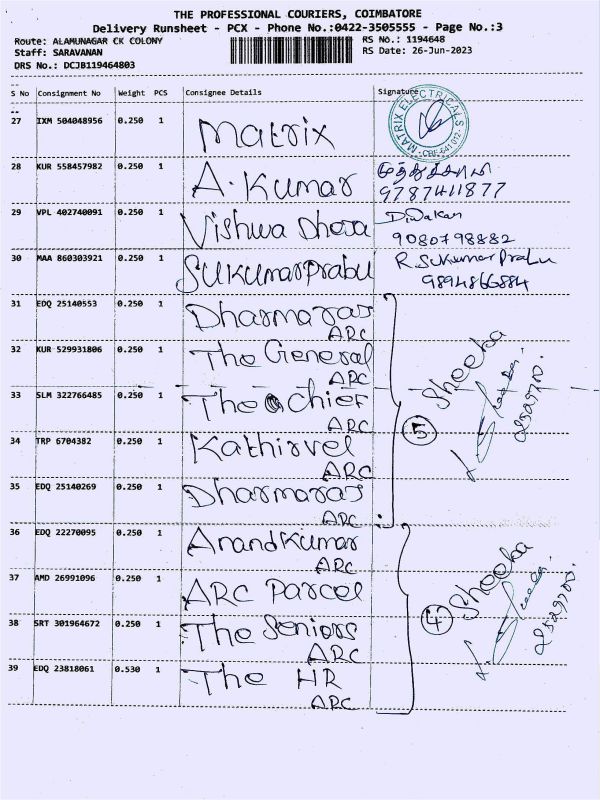 THE PROFESSIONAL COURIERS, COIMBATORE
Delivery Runsheet - PCX - Phone No.:0422-3505555 - Page No.:3
Route: ALAMUNAGAR CK COLONY
RS No.: 1194648
Staff: SARAVANAN
RS Date: 26-Jun-2023
DRS No.: DCJB119464803
S No Consignment No Weight PCS Consignee Details Signature
27 IXM 504048956 0.250 1 Matrix
MATRIX ELECTRICALS
CBE-641 012
28 KUR 558457982 0.250 1 A. Kumar
9787411877
29 VPL 402740091 0.250 1 Vishwa Dhera Diwakan
9080798882
30 MAA 860303921 0.250 1 Sukumarprabu R Sukumar Prabu
9894866884
31 EDQ 25140553 0.250 1 Dharmaras
ARC
32 KUR 529931806 0.250 1 The General
ARC
33 SLM 322766485 0.250 1 The chief
ARC
5 Sheeba
34 TRP 6704382 0.250 1 Kathirvel
ARC
35 EDQ 25140269 0.250 1 Dharmaras
ARC
36 EDQ 22270095 0.250 1 Anandkumar
ARC
37 AMD 26991096 0.250 1 ARC Parcel
4 Sheeba
38 SRT 301964672 0.250 1 The Seniors
ARC
39 EDQ 23818061 0.530 1 The HR
ARC